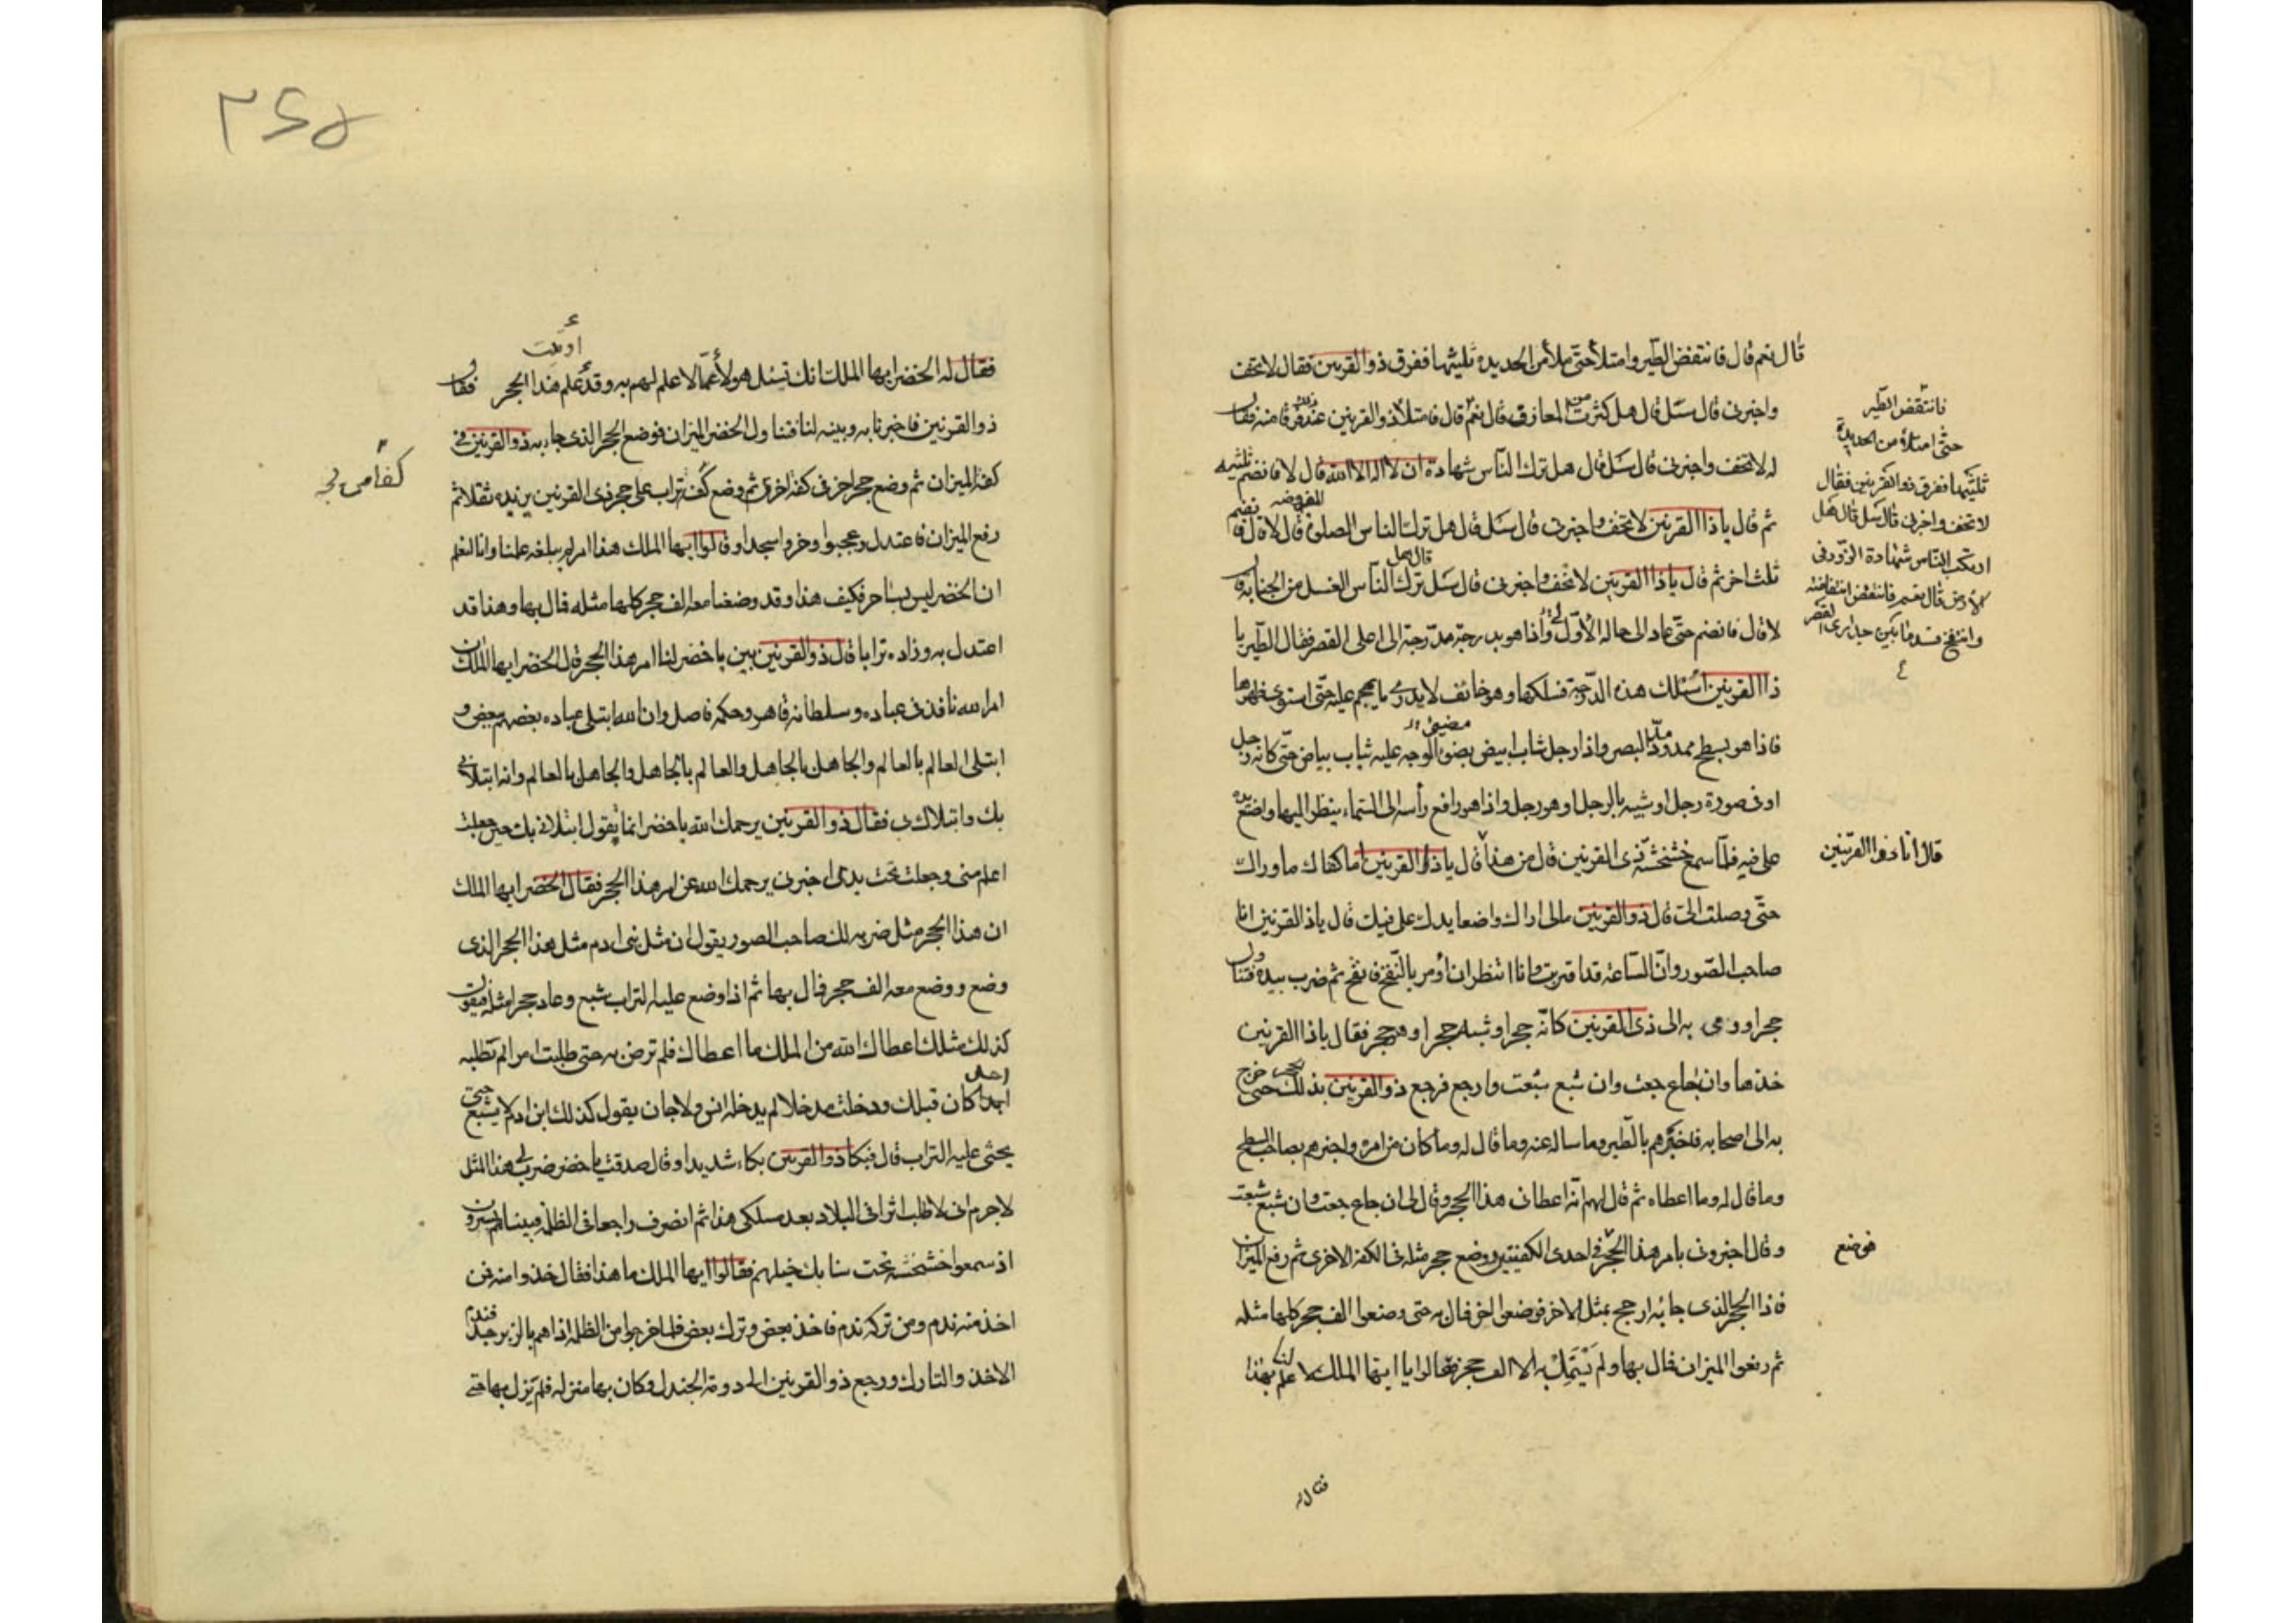 قال نعم قال فانتفض الطّير وامتلأ حتّى ملأ من الحديده ثليثها ففرق ذو القرنين فقال لا تخف
واخبرنى قال سَل قال هل كثرت المعازف قال نعم قال فامتلأ ذو القرنين عنده فرقا منه فقال
له لا تخف واخبرنى قال سَل قال هل ترك النّاس شهادة ان لا اله الا الله قال لا فانضم ثليثه
المفروضه فضم
ثم قال ياذا القرنين لا تخف واخبرنى قال سَل قال هل ترك الناس الصلوة قال لا قال
قال هل
ثلثا اخر ثم قال ياذا القرنين لا تخف واخبرنى قال سَل ترك النّاس الغسل من الجنابه قال
لا قال فانضم حتّى عاد الى حاله الأوّل وأذا هو بدرجة مدرجة الى اعلى القصر فقال الطّير يا
ذا القرنين اسلك هذه الدّرجة فسلكها وهو خائف لا يدرى ما يهجم عليه حتّى استوى ظهرها
فاذا هو بسطح ممدود البصر واذا رجل شاب ابيض مضئ الوجه عليه ثياب بياض حتّى كانه رجل
او فى صورة رجل او شبيه بالرجل او هو رجل واذا هو رافع رأسه الى السّماء ينظر اليها واضع يده
على فيه فلمّا سمع خشخشة ذى القرنين قال من هذا قال ياذا القرنين اما كفاك ما وراك
حتّى وصلت الىّ قال ذو القرنين مالى اراك واضعا يدك على فيك قال ياذا القرنين انا
صاحب الصّور وانّ السّاعة قد اقتربت وانا انتظر ان أومر بالنّفخ فانفخ ثم ضرب بيده فتناول
حجرا ورمى به الى ذى القرنين كانّه حجر او شبه حجر او هو حجر فقال ياذا القرنين
خذها وان جاع جعت وان شبع شبعت وارجع فرجع ذو القرنين بذلك الحجر حتى خرج
به الى اصحابه فاخبرهم بالطّير وما ساله عنه وما قال له وما كان من امره واخبرهم بصاحب السطح
وما قال له وما اعطاه ثم قال لهم انّه اعطانى هذا الحجر وقال لى ان جاع جعت وان شبع شبعت
وقال اخبرونى بامر هذا الحجر فى احدى الكفتين ووضع حجر مثله فى الكفة الاخرى ثم رفع الميزان
فاذا الحجر الذى جا به ارجح بمثل الاخر فوضعوا اخر فمال به حتى وضعوا الف حجر كلها مثله
ثم رفعوا الميزان فمال بها ولم يَسْتَمِلْ به الالف حجر فقالوا يا ايها الملك لا علم لنا بهذا
فقال له
فانتفض الطّير
حتّى امتلأ من الحديدة
ثلثيها ففرق ذو القرنين فقال
لا تخف واخبرنى قال سَل قال هل
ارتكب النّاس شهادة الزّور فى
الأرض قال نعم فانتفض انتفاضة
وانتفخ فسد ما بين جدارى القصر
قال انا ذو القرنين
فوضع
٣٤٥
أوتيت
فقال له الخضر ايها الملك انك تسئل هولاء عمّا لا علم لهم به وقد علم هذا الحجر فقال
ذو القرنين فاخبرنا به وبينه لنا فتناول الخضر الميزان فوضع الحجر الذى جاء به ذو القرنين فى
كفة الميزان ثم وضع حجرا اخر فى كفة اخرى ثم وضع كف تراب على حجر ذى القرنين يزيده ثقلا ثم
رفع الميزان فاعتدل وعجبوا وخروا سجدا وقالوا ايها الملك هذا امر لم يبلغه علمنا وانا لنعلم
ان الخضر ليس بساحر فكيف هذا وقد وضعنا معه الف حجر كلها مثله فمال بها وهذا قد
اعتدل به وزاده ترابا قال ذو القرنين بين يا خضر لنا امر هذا الحجر قال الخضر ايها الملك ان
امر الله نافذ فى عباده وسلطانه قاهر وحكمه فاصل وان الله ابتلى عباده بعضهم ببعض و
ابتلى العالم بالعالم والجاهل بالجاهل والعالم بالجاهل والجاهل بالعالم وانه ابتلانى
بك وابتلاك بى فقال ذو القرنين يرحمك الله يا خضر انما تقول ابتلانى بك حين جعلت
اعلم منى وجعلت تحت يدى اخبرنى يرحمك الله عن امر هذا الحجر فقال الخضر ايها الملك
ان هذا الحجر مثل ضربه لك صاحب الصور يقول ان مثل بنى ادم مثل هذا الحجر الذى
وضع ووضع معه الف حجر فمال بها ثم اذا وضع عليه التراب شبع وعاد حجرا مثله فيقول
كذلك مثلك اعطاك الله من الملك ما اعطاك فلم ترض به حتى طلبت امرا لم يطلبه
احد كان قبلك ودخلت مدخلا لم يدخله انس ولا جان يقول كذلك ابن ادم لا يشبع حتى
يحثى عليه التراب قال فبكا ذو القرنين بكاء شديدا وقال صدقت يا خضر ضرب لى هذا المثل
لا جرم انى لا اطلب اثرا فى البلاد بعد مسلكى هذا ثم انصرف راجعا فى الظلمة فبيناهم يسيرون
اذ سمعوا خشخشه تحت سنابك خيلهم فقالوا ايها الملك ما هذا فقال خذوا منه فمن
اخذ منه ندم ومن تركه ندم فاخذ بعض وترك بعض فلما خرجوا من الظلمة اذا هم بالزبرجد فندم
الاخذ والتارك ورجع ذو القرنين الى دومة الجندل وكان بها منزله فلم يزل بها حتى
كفا من